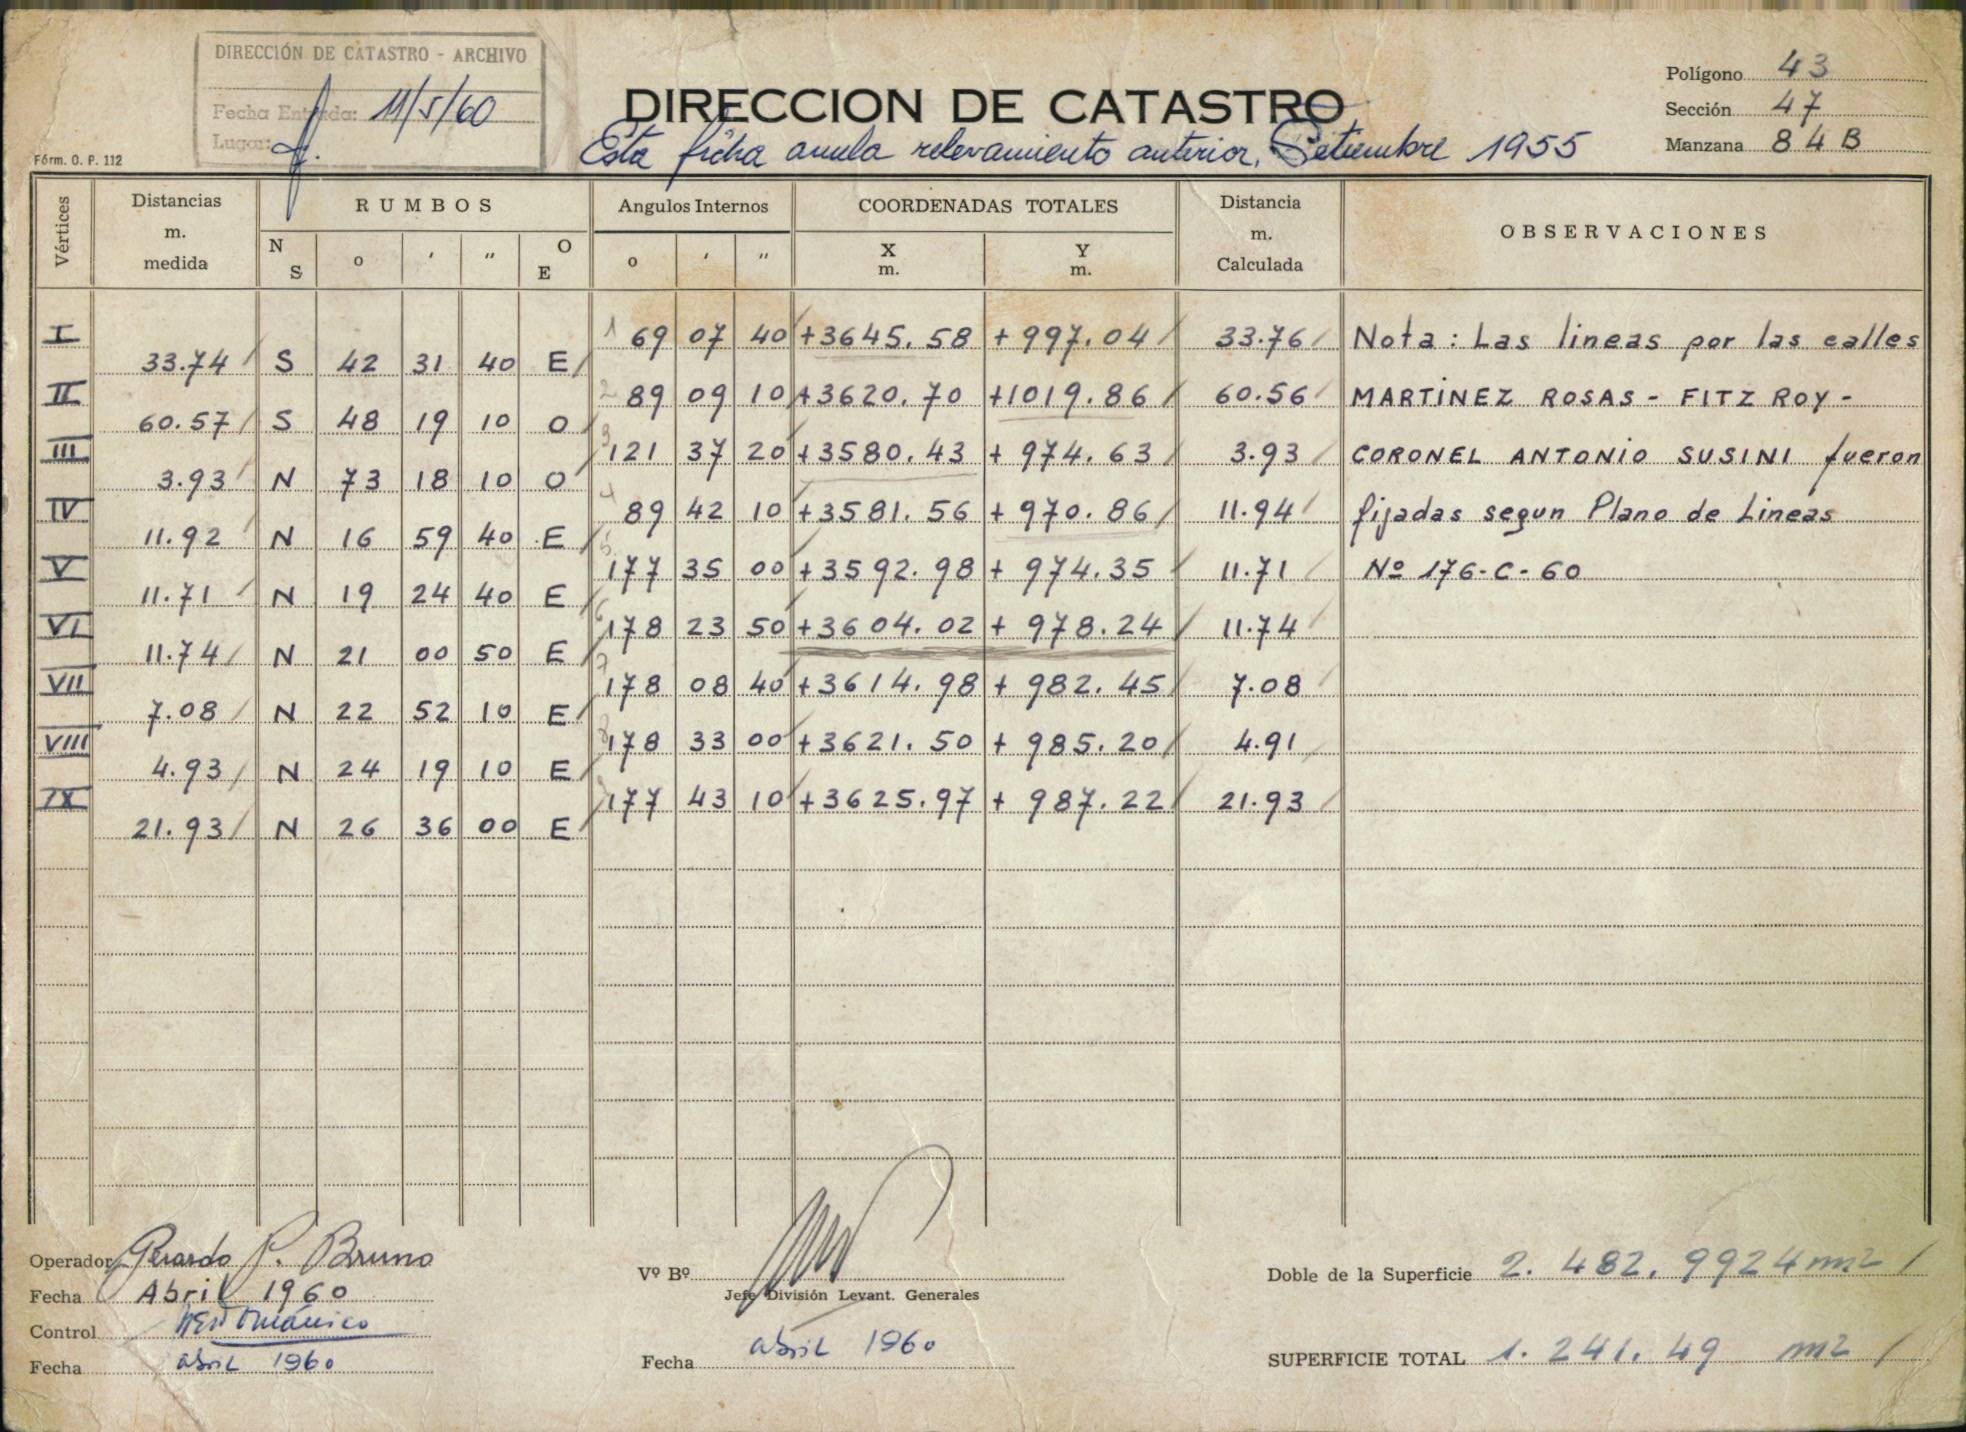 DIRECCIÓN DE CATASTRO - ARCHIVO
Fecha Entrada: 11/5/60
Lugar:
Fórm. O. P. 112
DIRECCION DE CATASTRO
Esta ficha anula relevamiento anterior, Setiembre 1955
Polígono 43
Sección 47
Manzana 84 B
Vértices
Distancias m. medida
RUMBOS
N S o ' " O E
Angulos Internos
o ' "
COORDENADAS TOTALES
X m. Y m.
Distancia m. Calculada
OBSERVACIONES
I 1 69 07 40 +3645.58 +997.04 33.76 Nota: Las lineas por las calles
33.74 S 42 31 40 E
II 2 89 09 10 +3620.70 +1019.86 60.56 MARTINEZ ROSAS - FITZ ROY -
60.57 S 48 19 10 O
III 3 121 37 20 +3580.43 + 974.63 3.93 CORONEL ANTONIO SUSINI fueron
3.93 N 73 18 10 O
IV 4 89 42 10 +3581.56 + 970.86 11.94 fijadas segun Plano de Lineas
11.92 N 16 59 40 E
V 5 177 35 00 +3592.98 + 974.35 11.71 Nº 176-C-60
11.71 N 19 24 40 E
VI 6 178 23 50 +3604.02 + 978.24 11.74
11.74 N 21 00 50 E
VII 7 178 08 40 +3614.98 + 982.45 7.08
7.08 N 22 52 10 E
VIII 8 178 33 00 +3621.50 + 985.20 4.91
4.93 N 24 19 10 E
IX 9 177 43 10 +3625.97 + 987.22 21.93
21.93 N 26 36 00 E
Operador Gerardo P. Bruno
Fecha Abril 1960
Control
Fecha abril 1960
Vº Bº
Jefe División Levant. Generales
Fecha abril 1960
Doble de la Superficie 2.482,9924 m2
SUPERFICIE TOTAL 1.241.49 m2